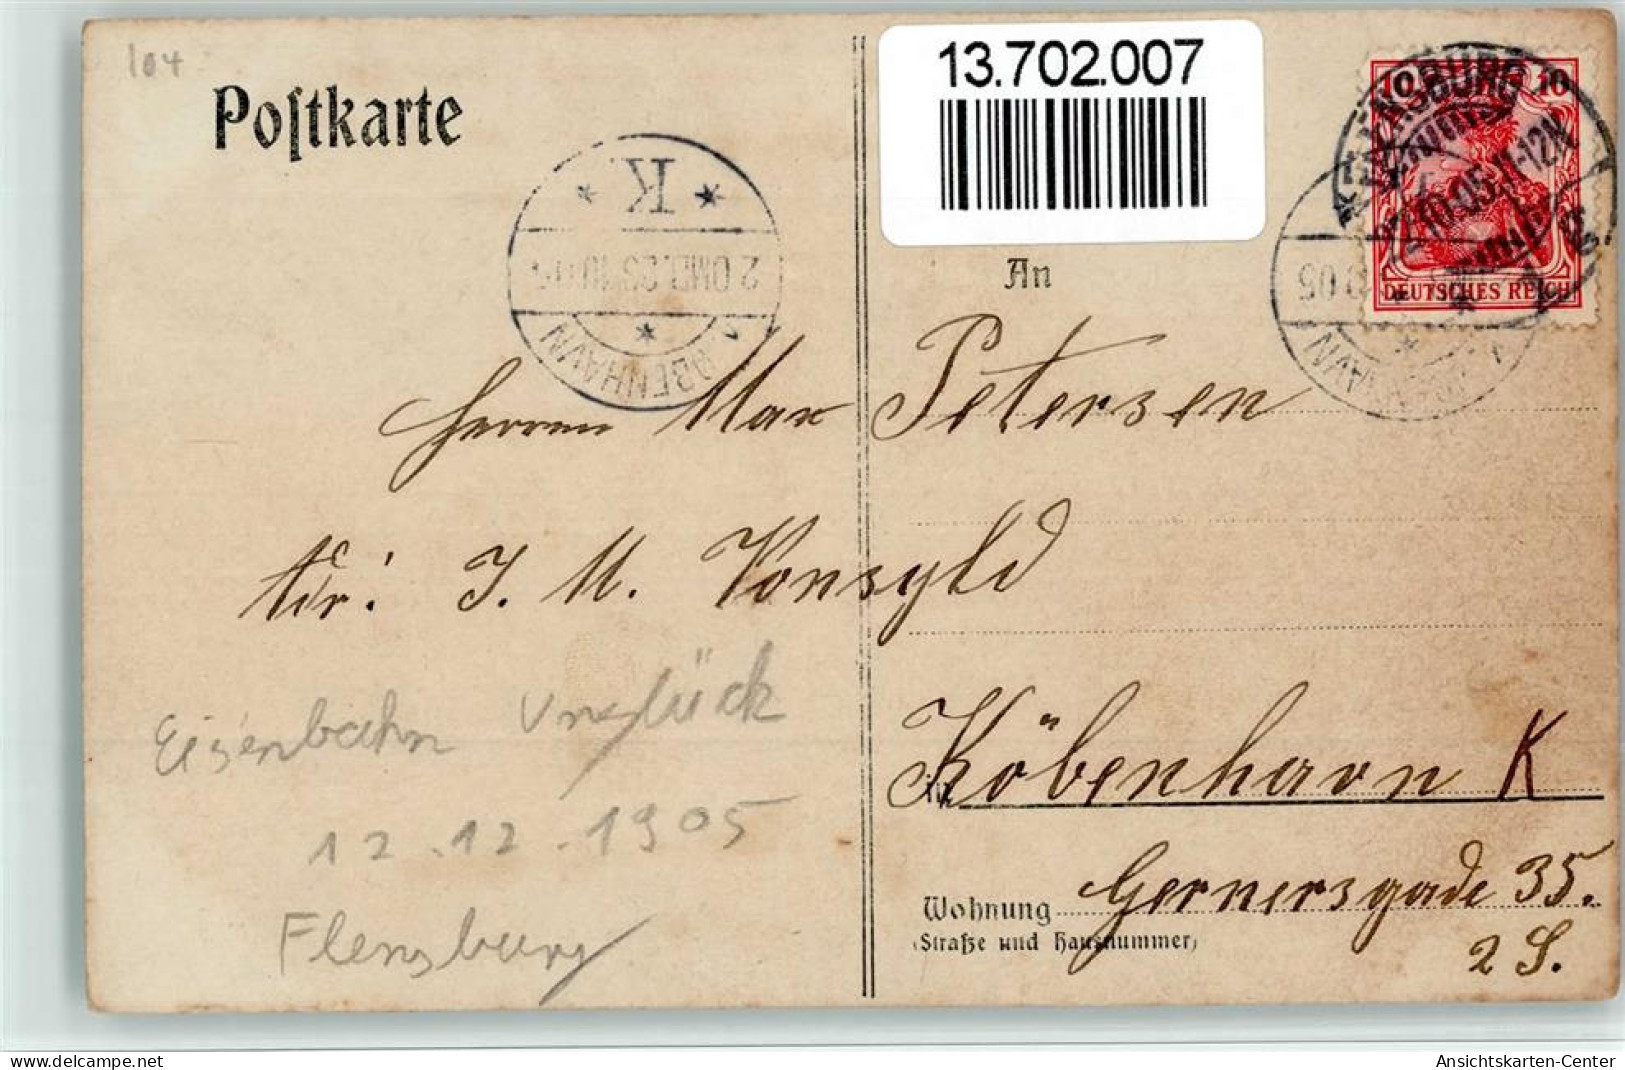 104
Postkarte
13.702.007
10 10
FLENSBURG
10.05.11-12N
DEUTSCHES REICH
K
2 OMB. 23.10.05
KJØBENHAVN
An
Herrn Max Petersen
Adr: J. M. Vonsyld
Köbenhavn K
in
Wohnung Gernersgade 35.
(Straße und Hausnummer)
2 S.
Eisenbahn Unglück
12.12.1905
Flensburg
www.delcampe.net
Ansichtskarten-Center